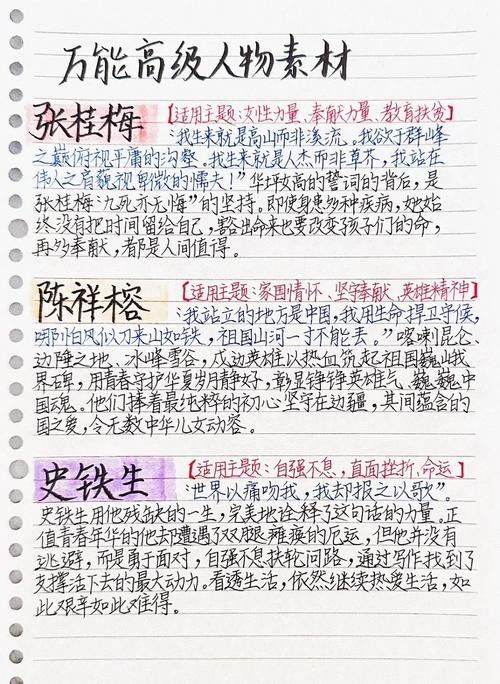 万能高级人物素材
张桂梅【适用主题:女性力量、奉献力量、教育扶贫】
"我生来就是高山而非溪流,我欲于群峰
之巅俯视平庸的沟壑。我生来就是人杰而非草芥,我站在
伟人之肩藐视卑微的懦夫!"华坪女高的誓词的背后,是
张桂梅"九死亦无悔"的坚持。即使身患多种疾病,她始
终没有把时间留给自己,豁出命来也要改变孩子们的命,
再多奉献,都是人间值得。
陈祥榕【适用主题:家国情怀、坚守奉献、英雄精神】
"我站立的地方是中国,我用生命捍卫守候,
哪怕风似刀来山如铁,祖国山河一寸不能丢。"喀喇昆仑、
边陲之地、冰峰雪谷,戍边英雄以热血筑起祖国巍峨
界碑,用青春守护华夏岁月静好,彰显铮铮英雄气、巍巍中
国魂。他们捧着最纯粹的初心坚守在边疆,其间蕴含的
国之爱,令无数中华儿女动容。
史铁生【适用主题:自强不息,直面挫折、命运】
"世界以痛吻我,我却报之以歌"。
史铁生用他残缺的一生,完美地诠释了这句话的力量。正
值青春年华的他却遭遇了双腿瘫痪的厄运,但他并没有
逃避,而是勇于面对,自强不息扶轮问路,通过写作找到了
支撑活下去的最大动力。看透生活,依然继续热爱生活,如
此艰辛如此难得。